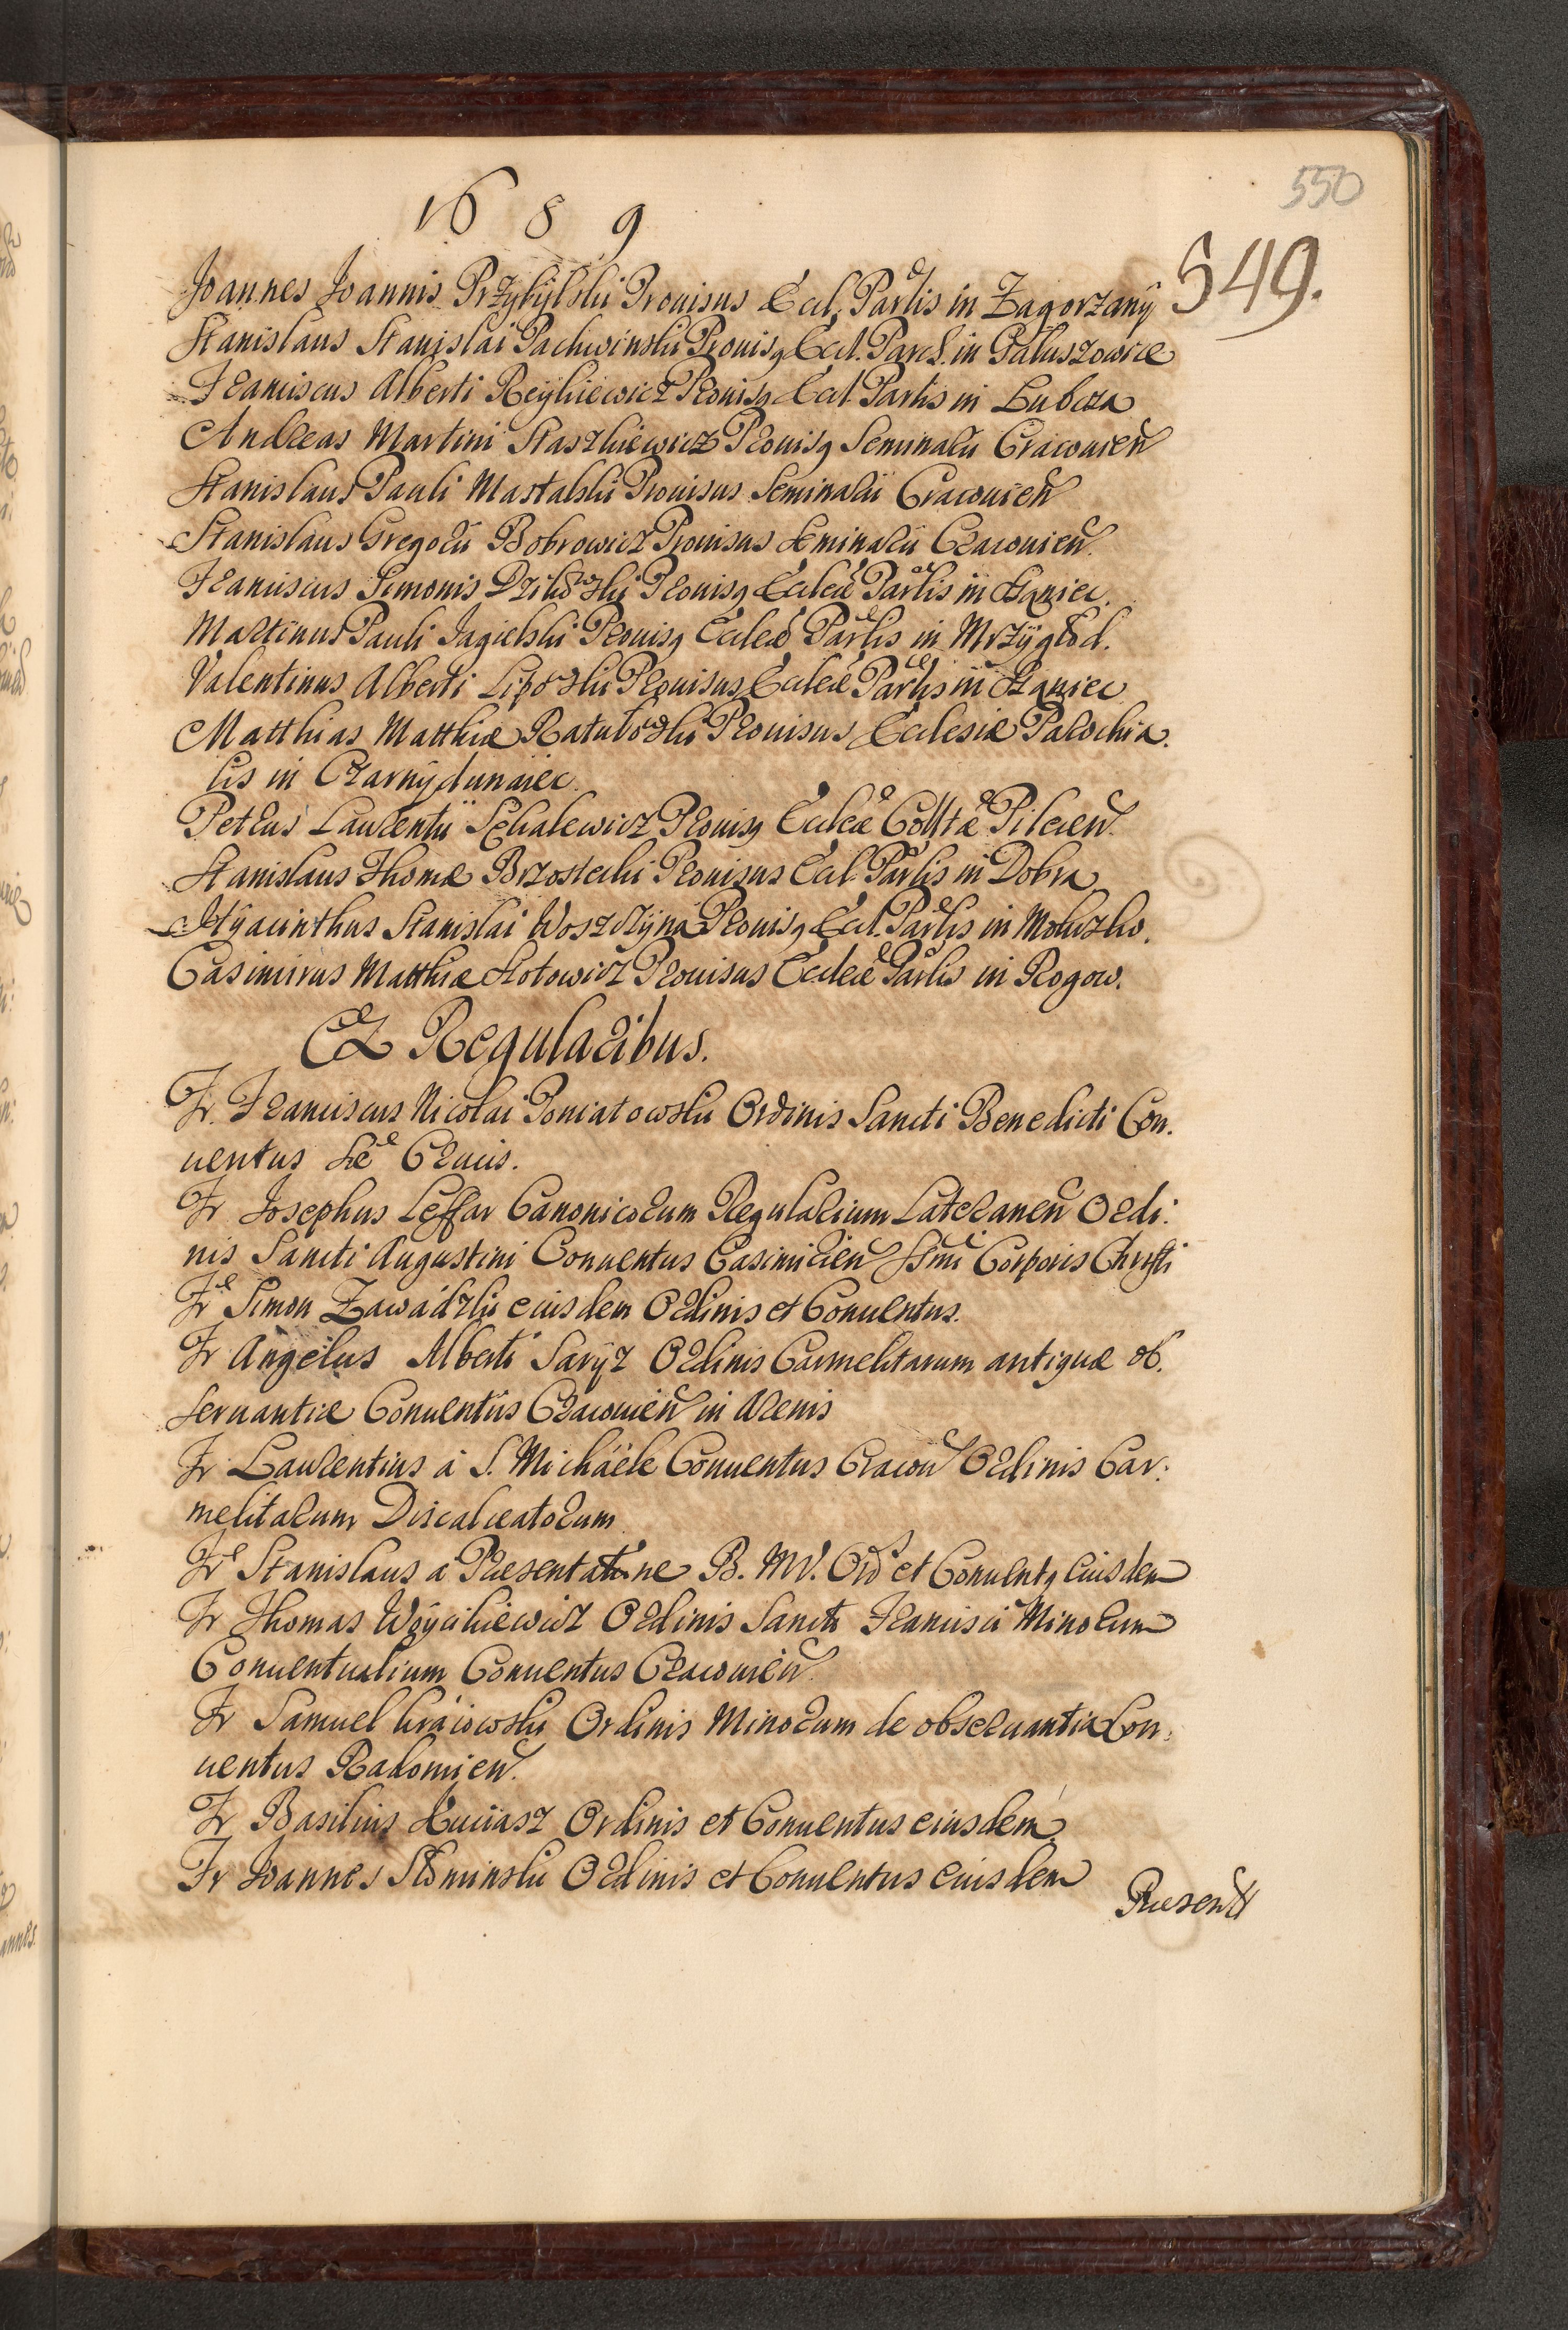 550
1689
549.
Joannes Joannis Przybylski Prouisus Eccl. Parlis in Zagorzany
Stanislaus Stanislai Pachwinski Prouisq Eccl. Parol. in Pałuszowice
Franciscus Alberti Reykiewicz Prouisq Eccl Parlis in Lubcza
Andreas Martini Staszkiewicz Prouisq Seminarii Cracouien
Stanislaus Pauli Mastalski Prouisus Seminarii Cracouien
Stanislaus Gregorii Bobrowicz Prouisus Seminarii Cracouien.
Franciscus Simonis Prouisq Eccleae Parlis in Staniec.
Martinus Pauli Jagielski Prouisq Eccleae Parlis in Mrzygłod.
Valentinus Alberti Prouisus Eccleae Parlis in Staniec
Matthias Matthiæ Ratułowski Prouisus Ecclesiæ Parochia.
lis in Czarnydunaiec.
Petrus Laurentii Prouisq Eccleæ Colltæ Pilcien.
Stanislaus Thomæ Brzostecki Prouisus Eccl. Parlis in Dobra
Hyacinthus Stanislai Woszczyna Prouisq Eccl. Parlis in Mokrzko.
Casimirus Matthiæ Kotowicz Prouisus Eccleæ Parlis in Rogow.
Ex Regularibus.
Fr. Franciscus Nicolai Poniatowski Ordinis Sancti Benedicti Con.
uentus Stæ Crucis.
Fr Josephus Leffar Canonicorum Regularium Lateranen Ordi:
nis Sancti Augustini Conuentus Casimirien Ssmi Corporis Christi
Fr Simon Zawadzki eiusdem Ordinis et Conuentus.
Fr Angelus Alberti Saryz Ordinis Carmelitarum antiquæ ob.
seruantiæ Conuentus Cracouien in Arenis
Fr Laurentius á S. Michäele Conuentus Cracou Ordinis Car:
melitarum Discalceatorum
Fr Stanislaus a Præsentatione B. MV. Ord et Conuentq eiusdem
Fr Thomas Woycikiewicz Ordinis Sancti Francisci Minorum
Conuentualium Conuentus Cracouien.
Fr Samuel Kraiowski Ordinis Minorum de obseruantia Con:
uentus Radomien.
Fr Basilius Ordinis et Conuentus eiusdem
Fr Joannes Słominski Ordinis et Conuentus eiusdem